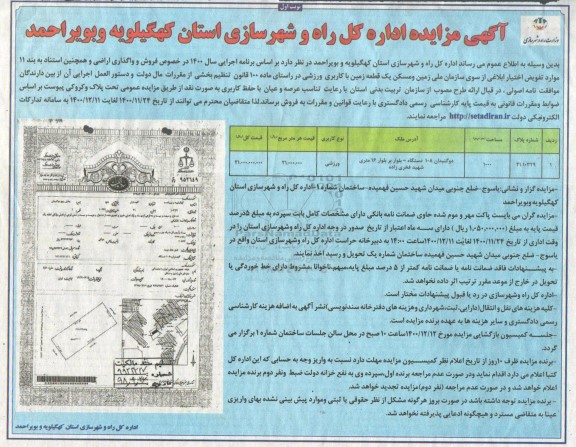 نوبت اول
آگهی مزایده اداره کل راه و شهرسازی استان کهگیلویه وبویراحمد
وزارت راه و شهرسازی
بدین وسیله به اطلاع عموم می رساند اداره کل راه و شهرسازی استان کهگیلویه و بویراحمد در نظر دارد بر اساس برنامه اجرایی سال ۱۴۰۰ در خصوص فروش و واگذاری اراضی و همچنین استناد به بند ۱۱
موارد تفویض اختیار ابلاغی از سوی سازمان ملی زمین ومسکن یک قطعه زمین با کاربری ورزشی در راستای ماده ۱۰۰ قانون تنظیم بخشی از مقررات مال دولت و دستور العمل اجرایی آن از بین دارندگان
موافقت نامه اصولی ، در قبال ارئه طرح مصوب از سازمان تربیت بدنی استان با رعایت تناسب عرصه و عیان با حفظ کاربری به صورت نقد از طریق مزایده عمومی تحت پلاک وکروکی پیوست بر اساس
ضوابط ومقررات قانونی به قیمت پایه کارشناسی رسمی دادگستری با رعایت قوانین و مقررات به فروش برساند.لذا متقاضیان محترم می توانند از تاریخ ۱۴۰۰/۱۱/۲۳ لغایت ۱۴۰۰/۱۲/۱۱ به سامانه تدارکات
الکترونیکی دولت http://setadiran.ir مراجعه نمایند.
ردیف شماره پلاک مساحت آدرس ملک نوع کاربری قیمت هر متر مربع قیمت کل
۱ ۳۱۱۰/۲۲۹ ۱۰۰۰ دوگنبدان ۱۰۸ دستگاه - بلوار بر بلوار ۱۶ متری شهید فخری زاده ورزشی ۲۱/۰۰۰/۰۰۰ ۲۱/۰۰۰/۰۰۰/۰۰۰
-مزایده گزار و نشانی:یاسوج -ضلع جنوبی میدان شهید حسین فهمیده -ساختمان شماره ۱-اداره کل راه و شهرسازی استان
کهگیلویه وبویراحمد
-مزایده گران می بایست پاکت مهر و موم شده حاوی ضمانت نامه بانکی دارای مشخصات کامل بابت سپرده به مبلغ ۵درصد
قیمت پایه به مبلغ (۱/۰۵۰/۰۰۰/۰۰۰ ریال ) دارای سه ماه اعتبار از تاریخ صدور در وجه اداره کل راه وشهرسازی استان را در
وقت اداری از تاریخ ۱۴۰۰/۱۱/۲۳ لغایت ۱۴۰۰/۱۲/۱۱ساعت ۱۴:۰۰ به دبیرخانه حراست اداره کل راه وشهرسازی استان واقع در
یاسوج - ضلع جنوبی میدان شهید حسین فهمیده ساختمان شماره یک تحویل و رسید اخذ نمایند.
-به پیشنهادات فاقد ضمانت نامه یا ضمانت نامه کمتر از ۵ درصد مبلغ پایه،مبهم،ناخوانا ،مشروط دارای خط خوردگی یا
تحویل در خارج از موعد مقرر ترتیب اثر داده نخواهد شد.
-اداره کل راه وشهرسازی در رد یا قبول پیشنهادات مختار است.
- کلیه هزینه های نقل و انتقال(دارایی،ثبت،شهرداری وهزینه های دفترخانه سندنویسی)نشر آگهی به اضافه هزینه کارشناسی
رسمی دادگستری و سایر هزینه ها به عهده برنده مزایده است.
-جلسه کمیسیون بازگشایی مزایده مورخ ۱۴۰۰/۱۲/۱۲ساعت ۱۰ صبح در محل سالن جلسات ساختمان شماره ۱ برگزار می
گردد.
-برنده مزایده ظرف ۱۰روز از تاریخ اعلام نظر کمیسیون مزایده مهلت دارد نسبت به واریز وجه به حسابی که این اداره کل
کتبا اعلام می دارد اقدام نماید ودر صورت عدم مراجعه برنده اول،سپرده وی به نفع خزانه دولت ضبط ونفر دوم برنده مزایده
اعلام خواهد شد و در صورت عدم مراجعه (نفر دوم)مزایده تجدید خواهد شد.
- برنده مزایده توجه داشته باشد در صورت بروز هرگونه مشکل از نظر حقوقی یا ثبتی وموارد پیش بینی نشده بهای واریزی
عینا به متقاضی مسترد و هیچگونه ادعایی پذیرفته نخواهد شد.
اداره کل راه و شهرسازی استان کهگیلویه و بویراحمد